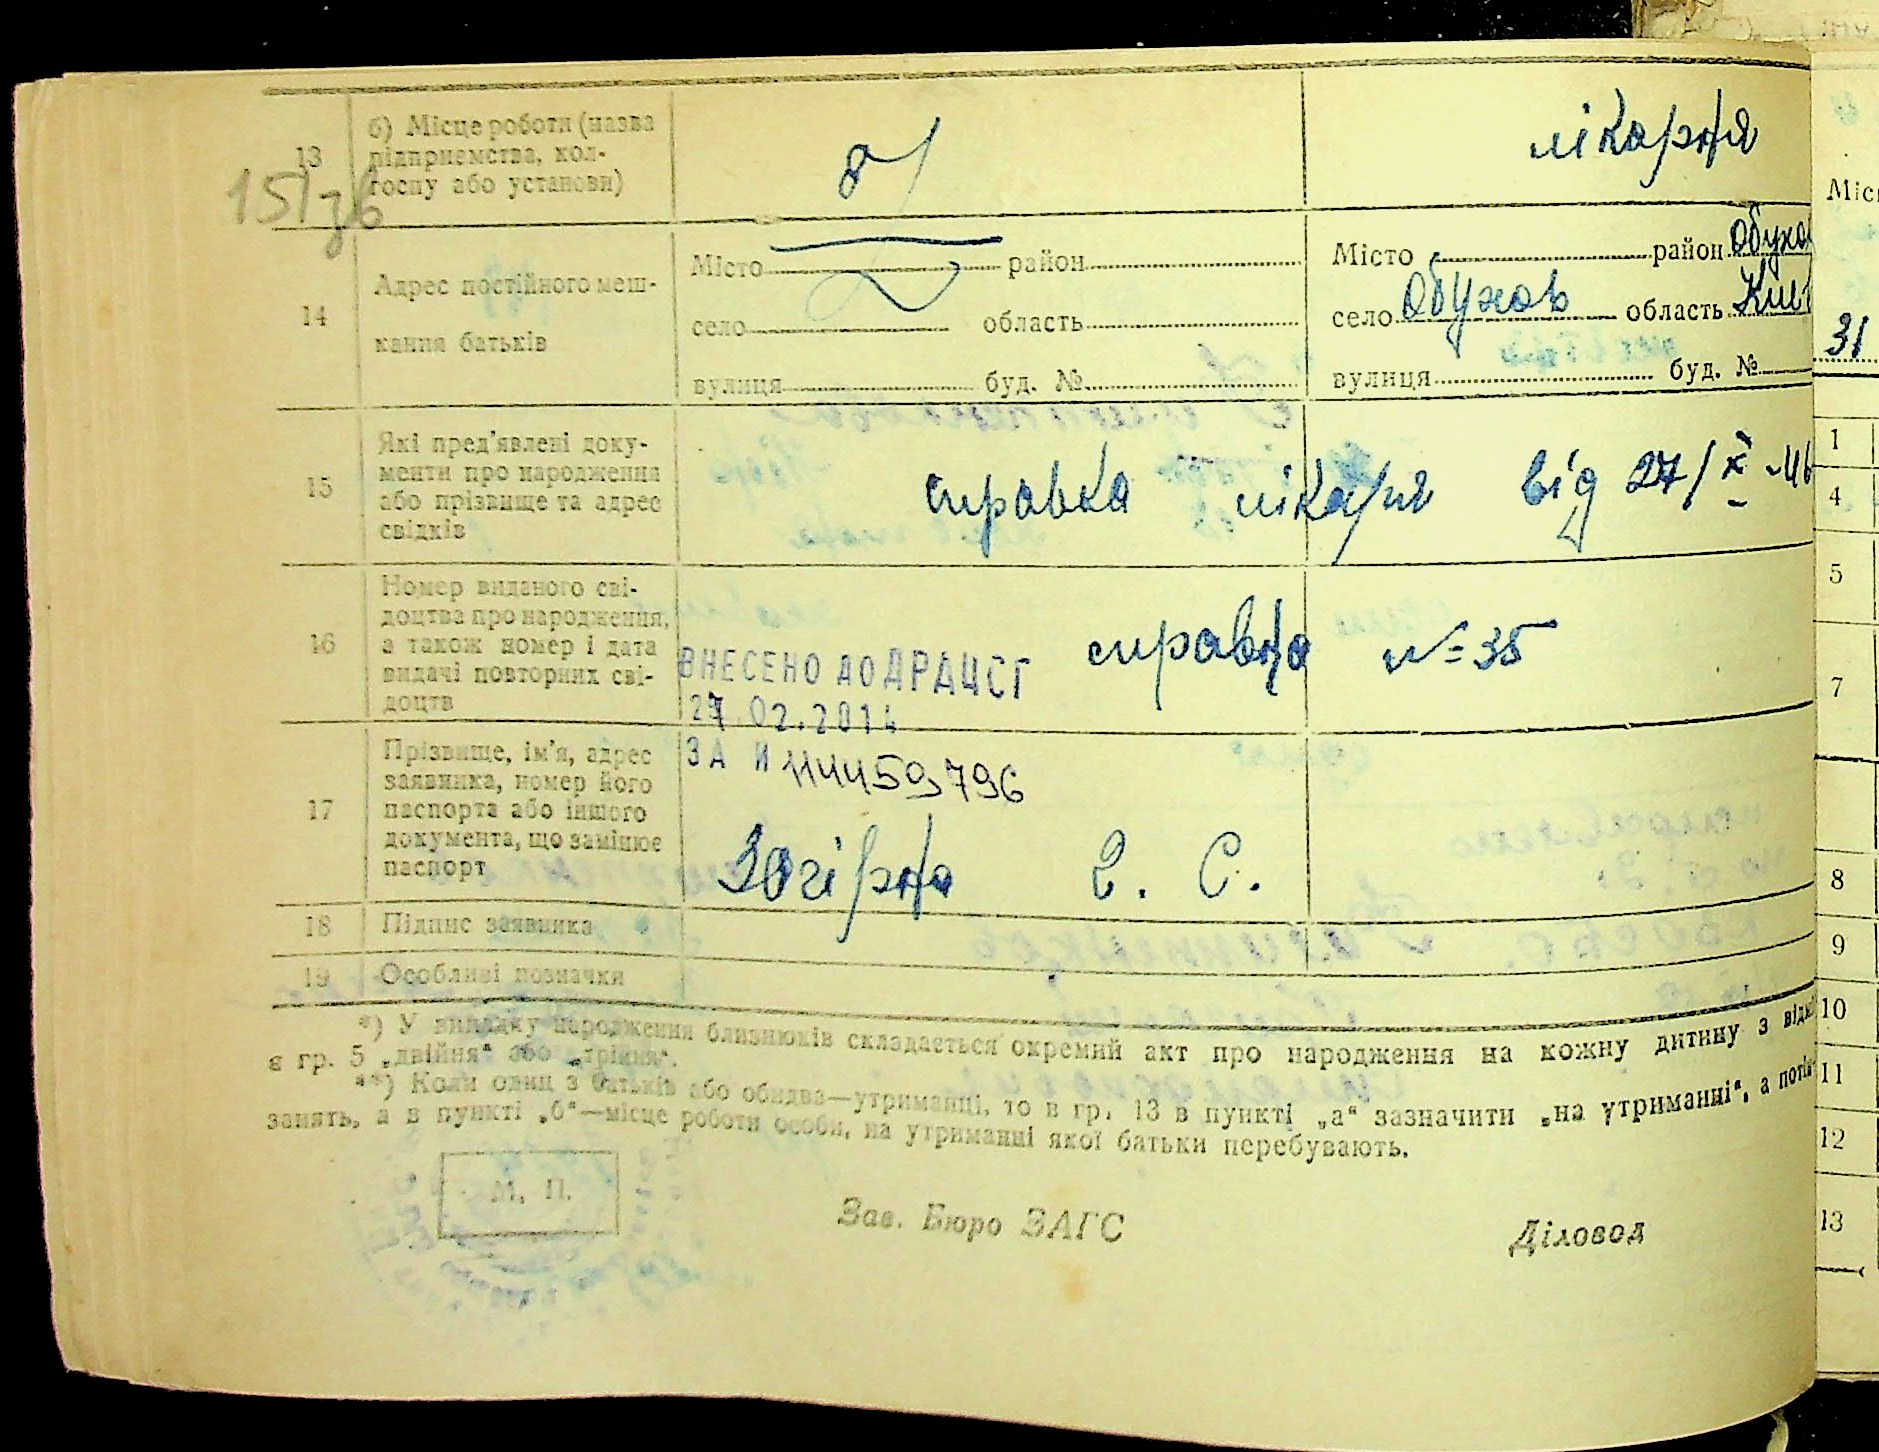 13
б) Місце роботи (назва
підприємства, кол-
госпу або установи)
лікарня
151
14
Адрес постійного меш-
кання батьків
Місто район
село область
вулиця буд. №
Місто район Обухо
село Обухов область Київ
вулиця буд. №
15
Які пред'явлені доку-
менти про народження
або прізвище та адрес
свідків
справка лікаря від 27/X-46
16
Номер виданого сві-
доцтва про народження,
а також номер і дата
видачі повторних сві-
доцтв
справка №=35
ВНЕСЕНО ДО ДРАЦСГ
27.02.2014
ЗА И 114459796
17
Прізвище, ім'я, адрес
заявника, номер його
паспорта або іншого
документа, що замінює
паспорт
Загірна Є. С.
18
Підпис заявника
19
Особливі позначки
*) У випадку народження близнюків складається окремий акт про народження на кожну дитину з відм
в гр. 5 „двійня“ або „трійня“.
**) Коли один з батьків або обидва—утриманці, то в гр. 13 в пункті „а“ зазначити „на утриманні“, а потім
занять, а в пункті „б“—місце роботи особи, на утриманні якої батьки перебувають.
М. П.
Зав. Бюро ЗАГС
Діловод
Міс
31
1
4
5
7
8
9
10
11
12
13